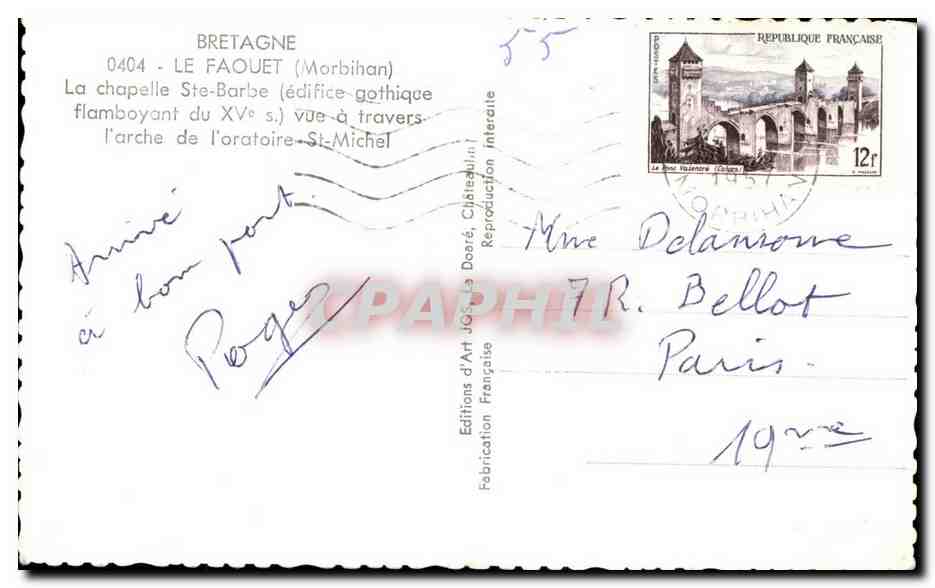 BRETAGNE
0404 - LE FAOUET (Morbihan)
La chapelle Ste-Barbe (édifice gothique
flamboyant du XVe s.) vue à travers
l'arche de l'oratoire St-Michel
55
POSTES
REPUBLIQUE FRANÇAISE
Le Pont Valentré (Cahors)
12F
1957
MORBIHAN
Arrivé
à bon port.
Roger
Editions d'Art JOS, Le Doaré, Châteaulin
Reproduction interdite
Fabrication Française
CPAPHIL
Mme Delansorne
7 R. Bellot
Paris
19me